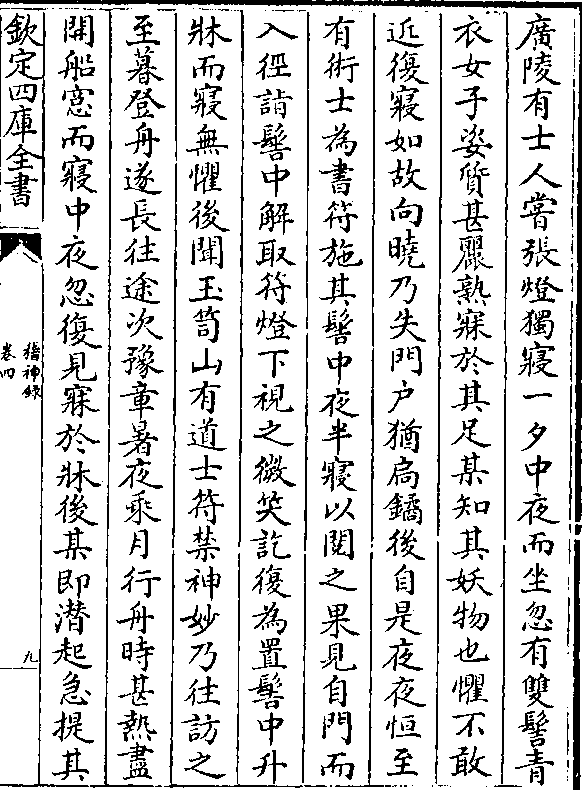 廣陵有士人嘗張燈獨寢一夕中夜而坐忽有雙髻青
衣女子姿質甚麗熟寐於其足某知其妖物也懼不敢
近復寢如故向曉乃失門户猶扃鐍後自是夜夜恒至
有術士為書符施其髻中夜半寢以閲之果見自門而
入徑詣髻中解取符燈下視之微笑訖復為置髻中升
牀而寢無懼後聞玉笥山有道士符禁神妙乃往訪之
至暮登舟遂長往途次豫章暑夜乘月行舟時甚熱盡
開船窓而寢中夜忽復見寐於牀後某即潛起急提其
欽定四庫全書
稽神録
卷四
九